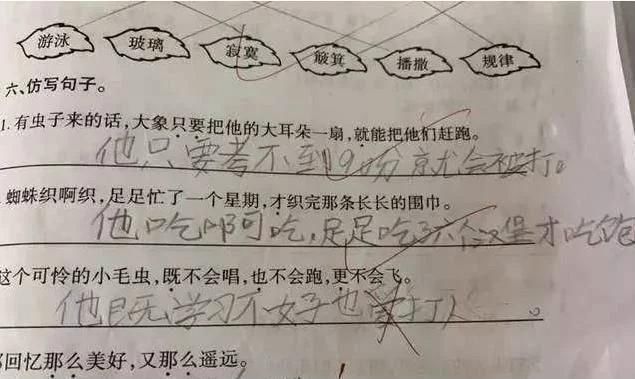 游泳 玻璃 寂寞 簸箕 播撒 规律
六、仿写句子。
1.有虫子来的话,大象只要把他的大耳朵一扇,就能把他们赶跑。
他只要考不到90分就会被打。
.蜘蛛织啊织,足足忙了一个星期,才织完那条长长的围巾。
他吃啊吃,足足吃了六个汉堡才吃饱
这个可怜的小毛虫,既不会唱,也不会跑,更不会飞。
他既学习不好也打人。
回忆那么美好,又那么遥远。